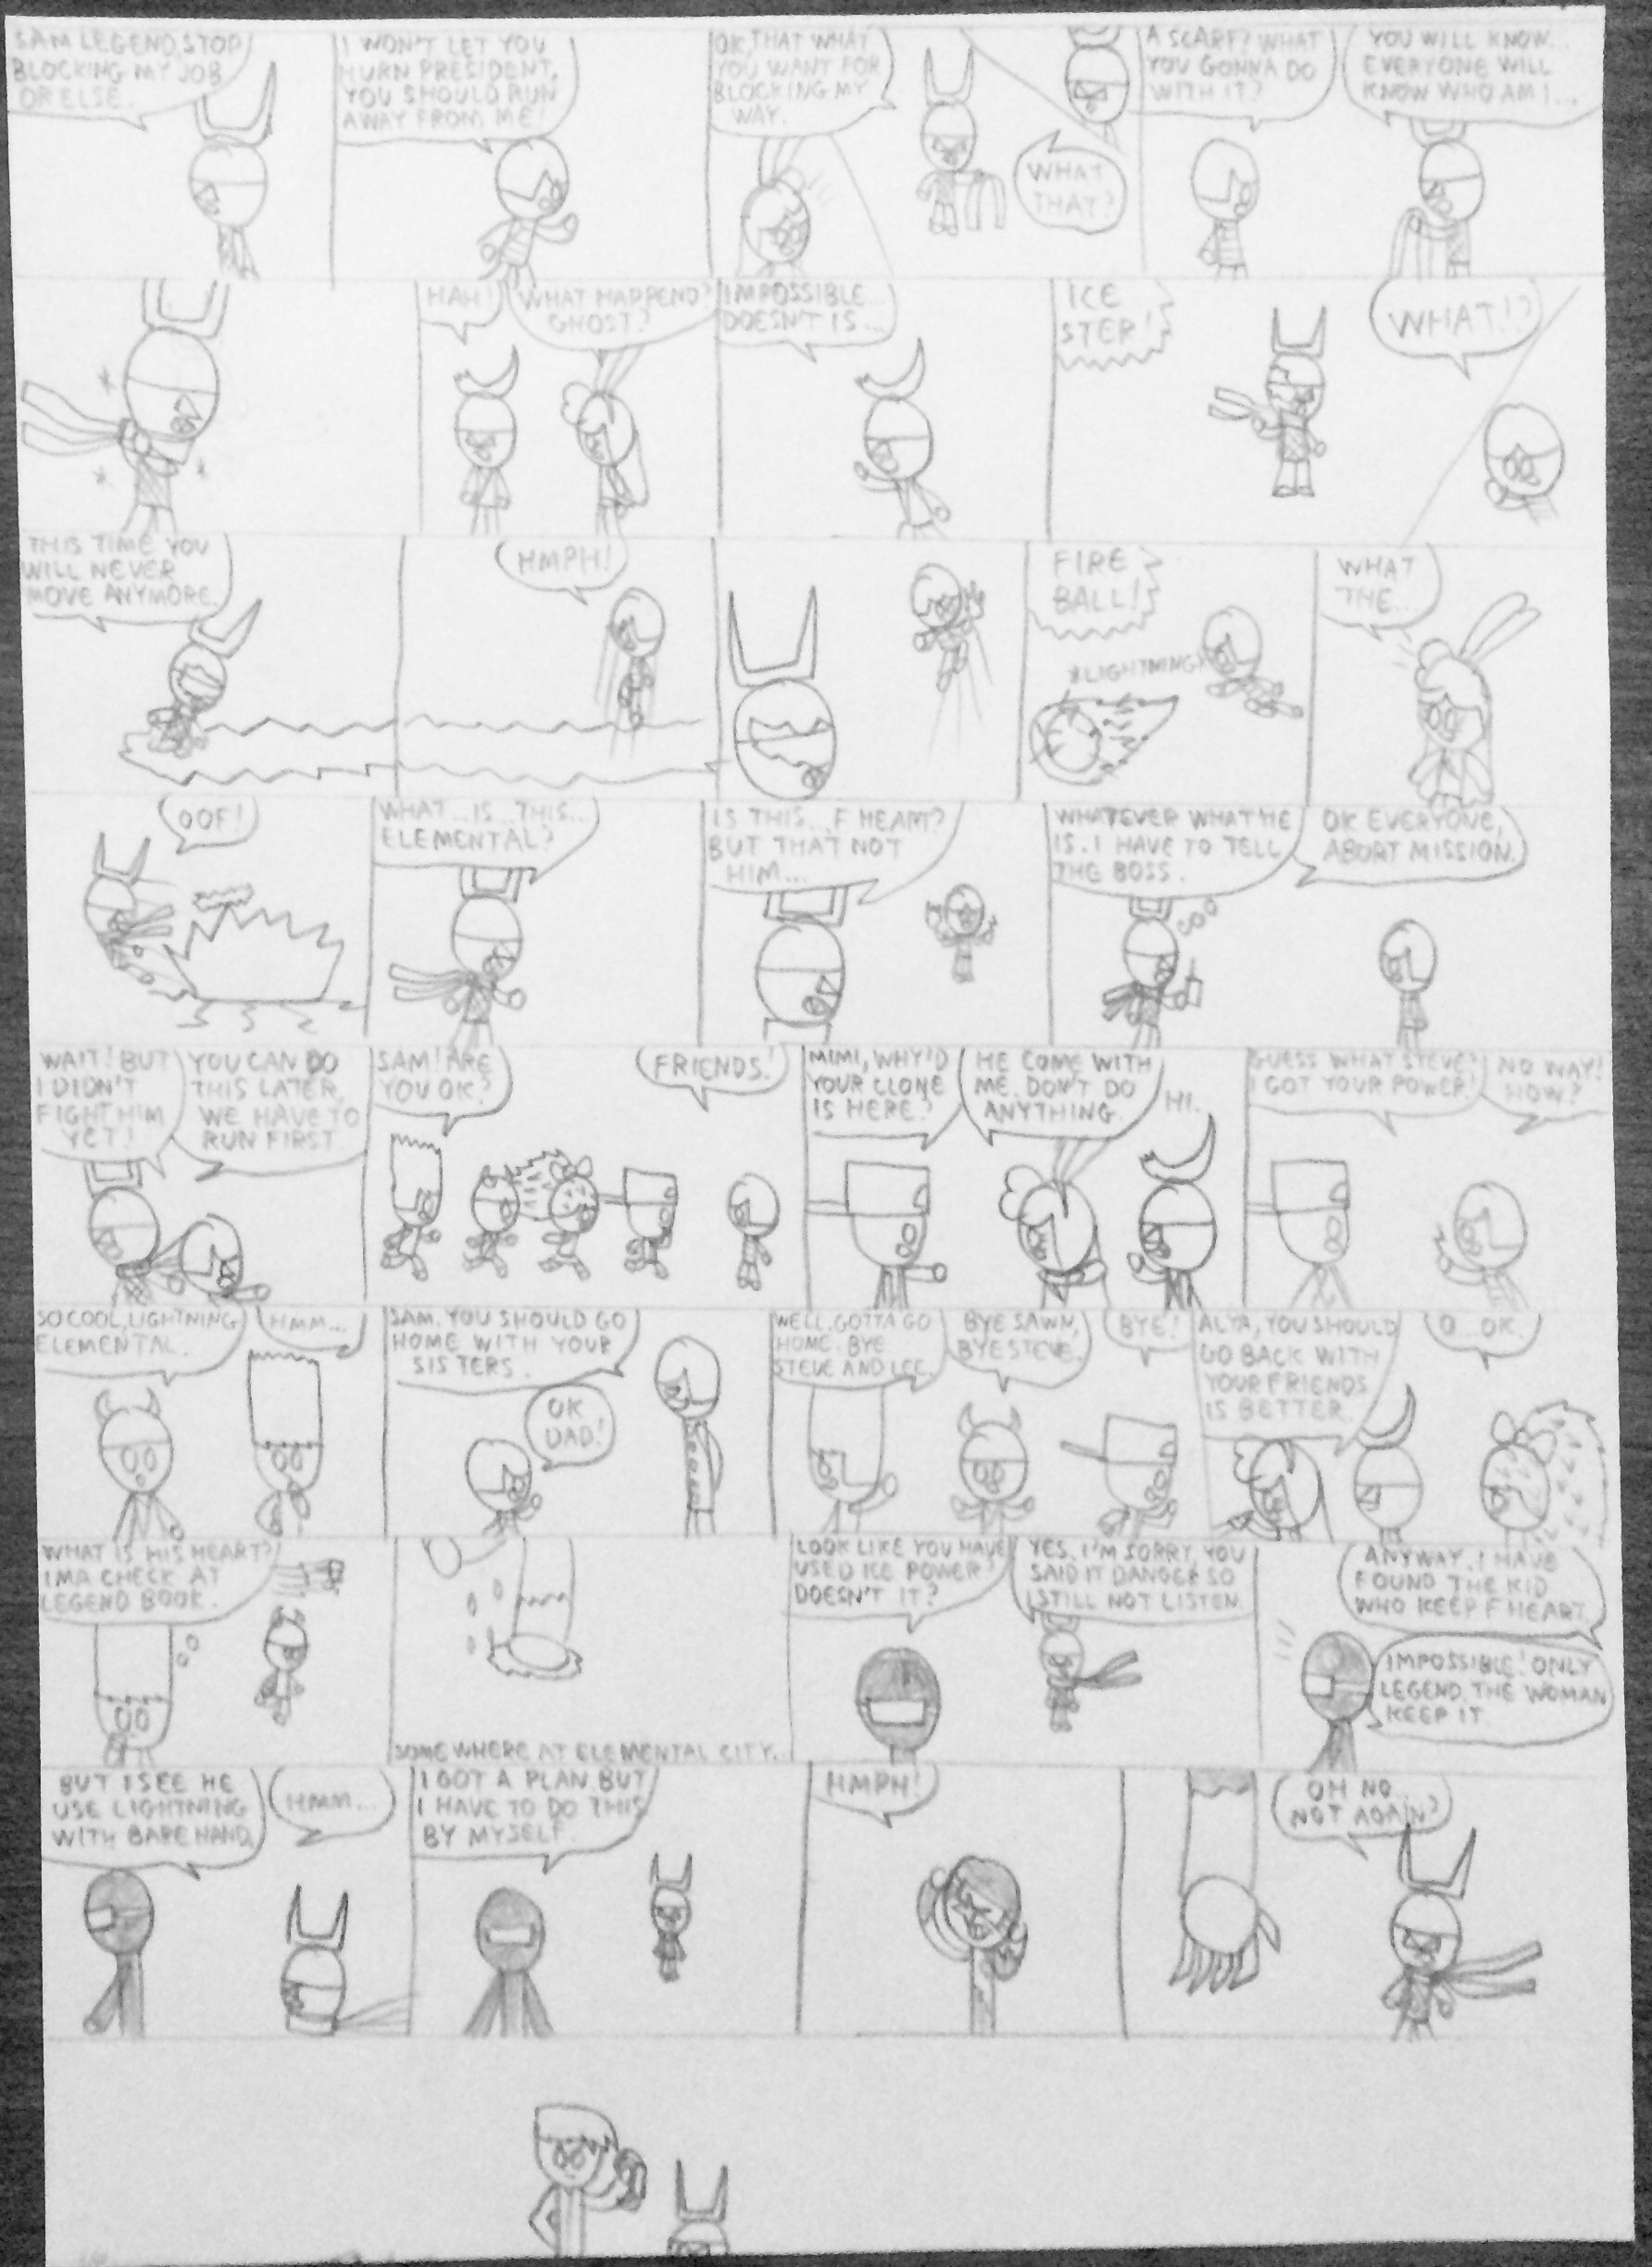 SAM LEGEND, STOP
BLOCKING MY JOB
OR ELSE.
I WON'T LET YOU
HURN PRESIDENT.
YOU SHOULD RUN
AWAY FROM ME!
OK, THAT WHAT
YOU WANT FOR
BLOCKING MY
WAY.
WHAT
THAT?
A SCARF? WHAT
YOU GONNA DO
WITH IT?
YOU WILL KNOW...
EVERYONE WILL
KNOW WHO AM I...
HAH!
WHAT HAPPEND?
GHOST?
IMPOSSIBLE...
DOESN'T IS...
ICE
STER!
WHAT!?
THIS TIME YOU
WILL NEVER
MOVE ANYMORE.
HMPH!
FIRE
BALL!
*LIGHTNING*
WHAT
THE...
OOF!
WHAT...IS...THIS...
ELEMENTAL?
IS THIS...F HEART?
BUT THAT NOT
HIM...
WHATEVER WHAT HE
IS. I HAVE TO TELL
THE BOSS.
OK EVERYONE,
ABORT MISSION.
WAIT! BUT
I DIDN'T
FIGHT HIM
YET!
YOU CAN DO
THIS LATER,
WE HAVE TO
RUN FIRST
SAM! ARE
YOU OK?
FRIENDS!
MIMI, WHY'D
YOUR CLONE
IS HERE?
HE COME WITH
ME. DON'T DO
ANYTHING.
HI.
GUESS WHAT STEVE?
I GOT YOUR POWER!
NO WAY!
HOW?
SO COOL, LIGHTNING
ELEMENTAL.
HMM...
SAM. YOU SHOULD GO
HOME WITH YOUR
SISTERS.
OK
DAD!
WELL, GOTTA GO
HOME. BYE
STEVE AND LEE.
BYE SAWN,
BYE STEVE.
BYE!
ALYA, YOU SHOULD
GO BACK WITH
YOUR FRIENDS
IS BETTER.
O...OK.
WHAT IS HIS HEART?
IMA CHECK AT
LEGEND BOOK.
SOMEWHERE AT ELEMENTAL CITY.
LOOK LIKE YOU HAVE
USED ICE POWER?
DOESN'T IT?
YES, I'M SORRY, YOU
SAID IT DANGER SO
I STILL NOT LISTEN.
ANYWAY, I HAVE
FOUND THE KID
WHO KEEP F HEART.
IMPOSSIBLE! ONLY
LEGEND, THE WOMAN
KEEP IT.
BUT I SEE HE
USE LIGHTNING
WITH BARE HAND.
HMM...
I GOT A PLAN. BUT
I HAVE TO DO THIS
BY MYSELF.
HMPH!
OH NO...
NOT AGAIN?